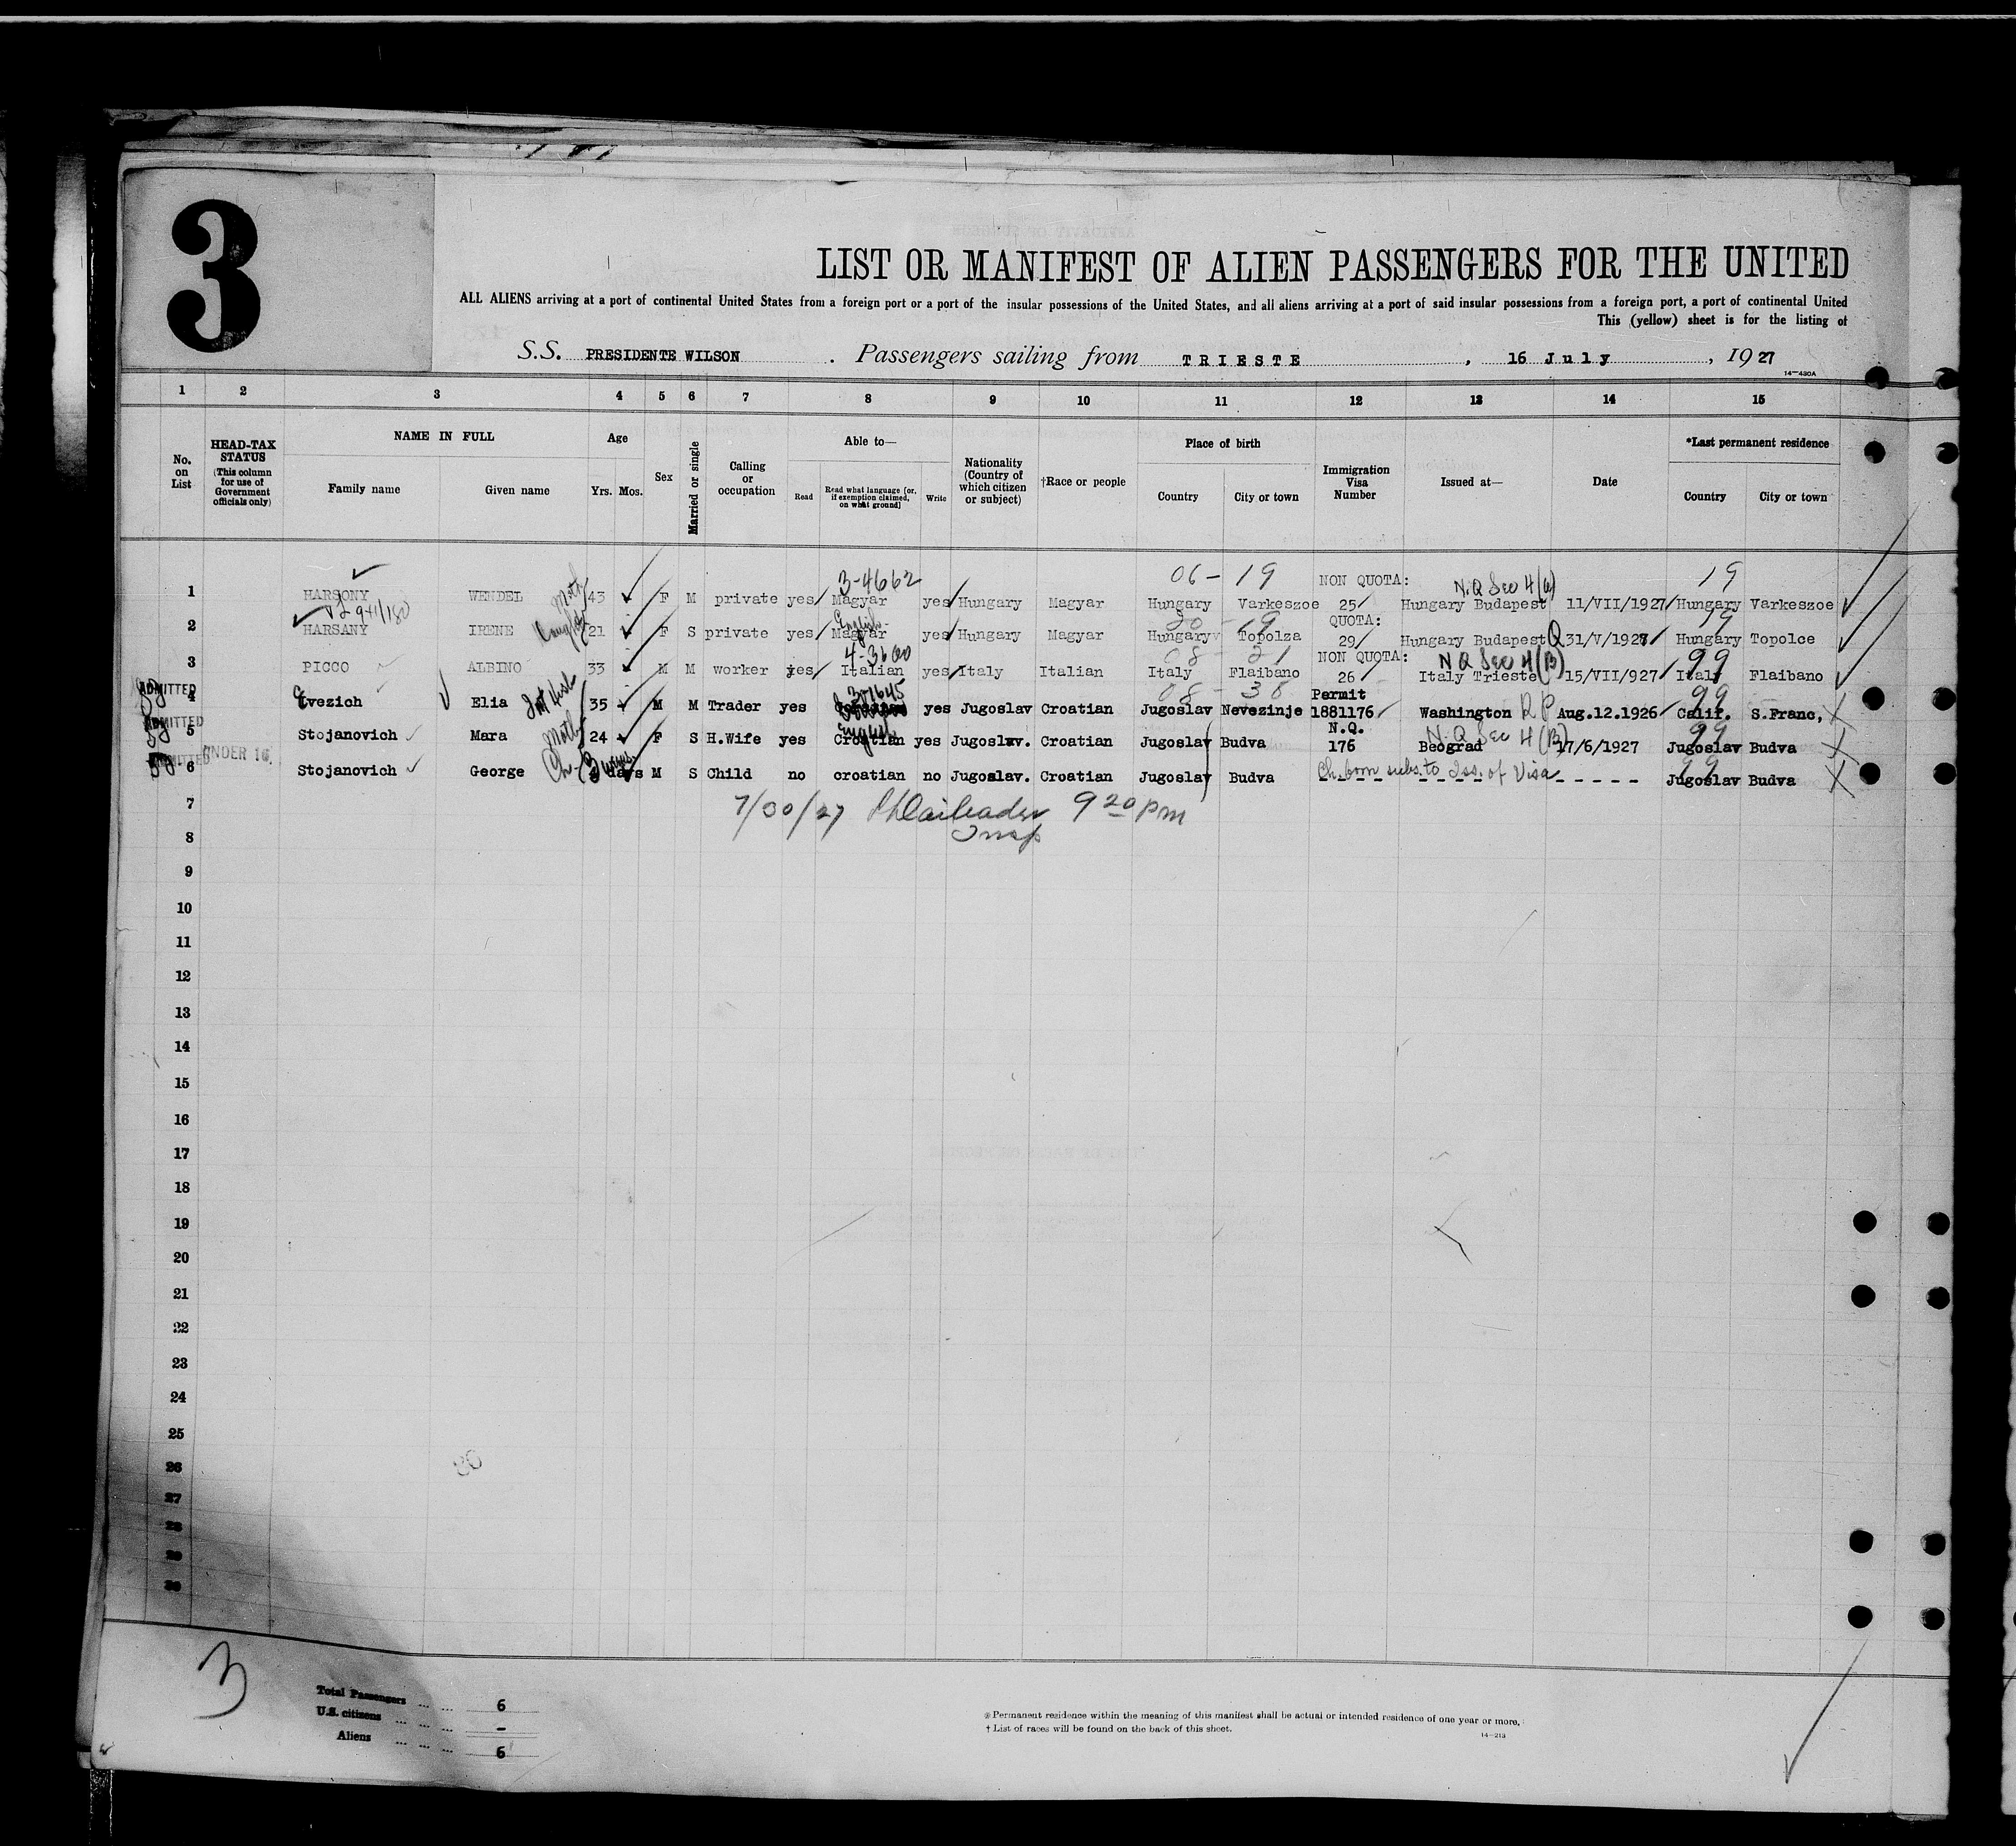 3
LIST OR MANIFEST OF ALIEN PASSENGERS FOR THE UNITED
ALL ALIENS arriving at a port of continental United States from a foreign port or a port of the insular possessions of the United States, and all aliens arriving at a port of said insular possessions from a foreign port, a port of continental United
This (yellow) sheet is for the listing of
S.S. PRESIDENTE WILSON. Passengers sailing from TRIESTE, 16 July, 1927
14—430A
1 2 3 4 5 6 7 8 9 10 11 12 13 14 15
No. on List
HEAD-TAX STATUS (This column for use of Government officials only)
NAME IN FULL
Family name Given name
Age
Yrs. Mos.
Sex
Married or single
Calling or occupation
Able to—
Read
Read what language [or, if exemption claimed, on what ground]
Write
Nationality (Country of which citizen or subject)
†Race or people
Place of birth
Country City or town
Immigration Visa Number
Issued at—
Date
*Last permanent residence
Country City or town
3-4662 06-19 NON QUOTA: N.Q Sec 4(a) 19
1 HARSONY WENDEL Moth 43 F M private yes Magyar yes Hungary Magyar Hungary Varkeszoe 25 Hungary Budapest 11/VII/1927 Hungary Varkeszoe
English QUOTA: 19
2 HARSANY IRENE 21 F S private yes Magyar yes Hungary Magyar Hungary Topolza 29 Hungary Budapest Q 31/V/1927 Hungary Topolce
4-3600 08-21 NON QUOTA: N Q Sec 4(B) 99
3 PICCO ALBINO 33 M M worker yes Italian yes Italy Italian Italy Flaibano 26 Italy Trieste 15/VII/927 Italy Flaibano
ADMITTED 3-1645 08-38 Permit 99
4 Evezich Elia 35 M M Trader yes yes Jugoslav Croatian Jugoslav Nevezinje 1881176 Washington R P Aug.12.1926 Calif. S.Franc,
ADMITTED N.Q. N.Q Sec 4(B) 99
5 Stojanovich Mara Moth 24 F S H.Wife yes Croatian yes Jugoslav. Croatian Jugoslav Budva 176 Beograd 17/6/1927 Jugoslav Budva
ADMITTED UNDER 16. 99
6 Stojanovich George Ch 3 days M S Child no croatian no Jugoslav. Croatian Jugoslav Budva Ch. born subs. to Iss. of Visa Jugoslav Budva
7 7/30/27 9 20 pm
Insp
8
9
10
11
12
13
14
15
16
17
18
19
20
21
22
23
24
25
26
27
28
29
30
3
Total Passengers ... ... 6
U.S. citizens ... ... ... –
Aliens ... ... ... 6
* Permanent residence within the meaning of this manifest shall be actual or intended residence of one year or more.
† List of races will be found on the back of this sheet.
14—213